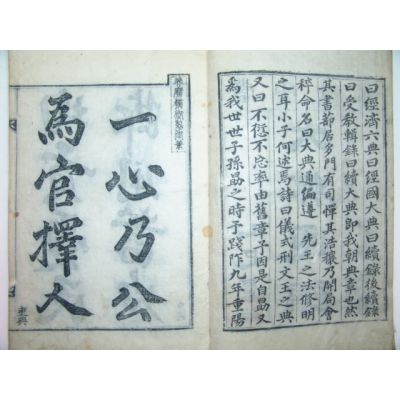 曰經濟六典曰經國大典曰續錄後續錄
曰受教輯錄曰續大典即我朝典章也然
其書節居多門有司憚其浩穰乃開局會
稡命名曰大典通編遵 先王之法修明
之耳小子何述焉詩曰儀式刑文王之典
又曰不愆不忘率由舊章予因是自勗又
爲我世世子孫勗之時予踐阼九年重陽
一心乃公
爲官擇人
吏典